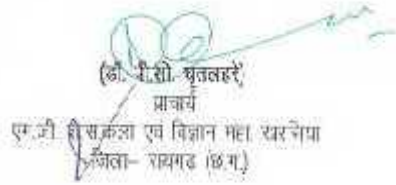 (डॉ. पी.सी. घृतलहरे)
प्राचार्य
एम.जी. शास.कला एवं विज्ञान महा. खरसिया
जिला- रायगढ (छ.ग.)